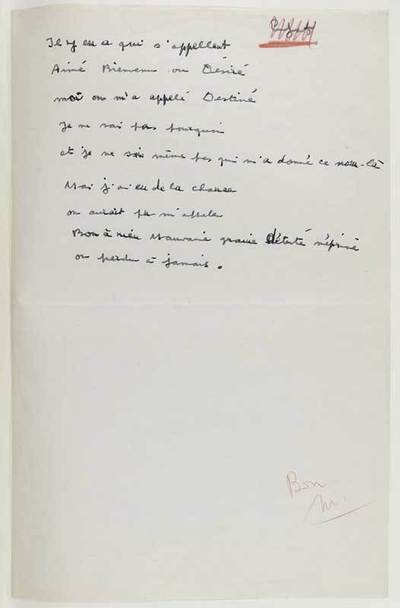 Il y en a qui s'appellent
Aimé Bienvenu ou Désiré
moi on m'a appelé Destiné
Je ne sais pas pourquoi
et je ne sais même pas qui m'a donné ce nom-là
Mais j'ai eu de la chance
on aurait pu m'appeler
Bon à rien Mauvaise graine Détesté Méprisé
ou perdu à jamais.
Bon